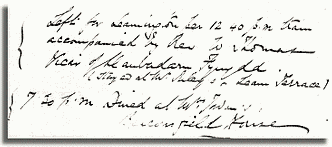 Left for Leamington per 12 40 p.m train
accompanied by Rev W Thomas
Vicar of Llanbadarn Fynydd
(stayed at Mr Terrace)
7 30 p.m. Dined at Mr
House